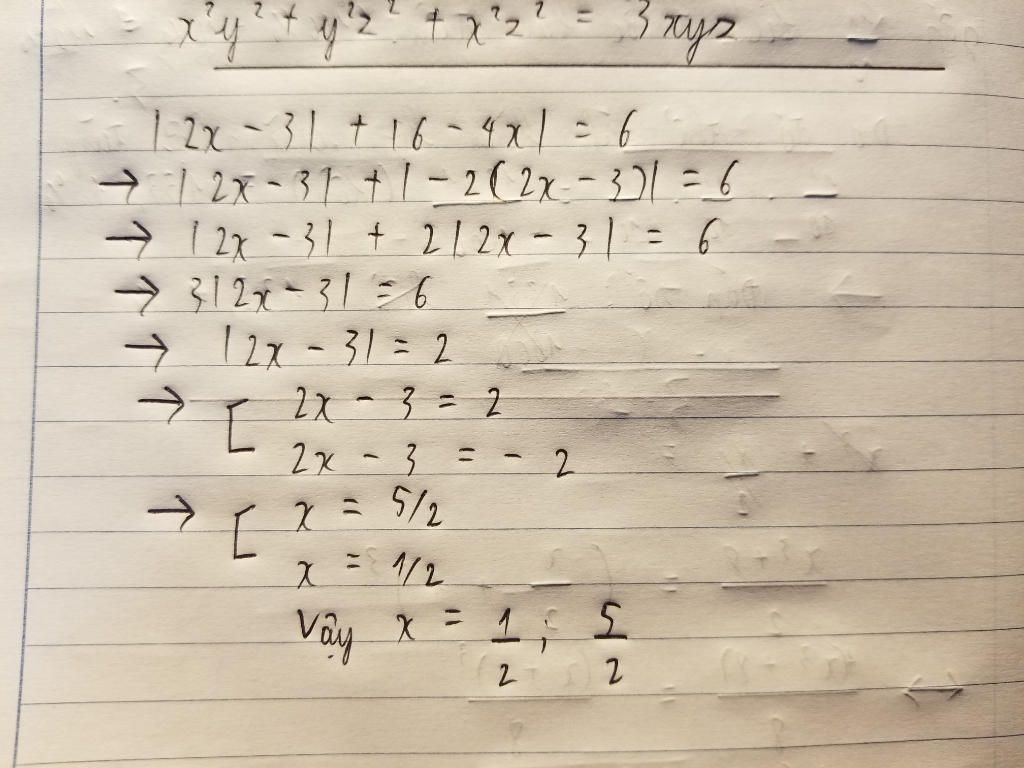 x²y² + y²z² + x²z² = 3xyz
|2x - 3| + |6 - 4x| = 6
→ |2x - 3| + |-2(2x - 3)| = 6
→ |2x - 3| + 2|2x - 3| = 6
→ 3|2x - 3| = 6
→ |2x - 3| = 2
→ [ 2x - 3 = 2
2x - 3 = - 2
→ [ x = 5/2
x = 1/2
Vậy x = 1/2 ; 5/2